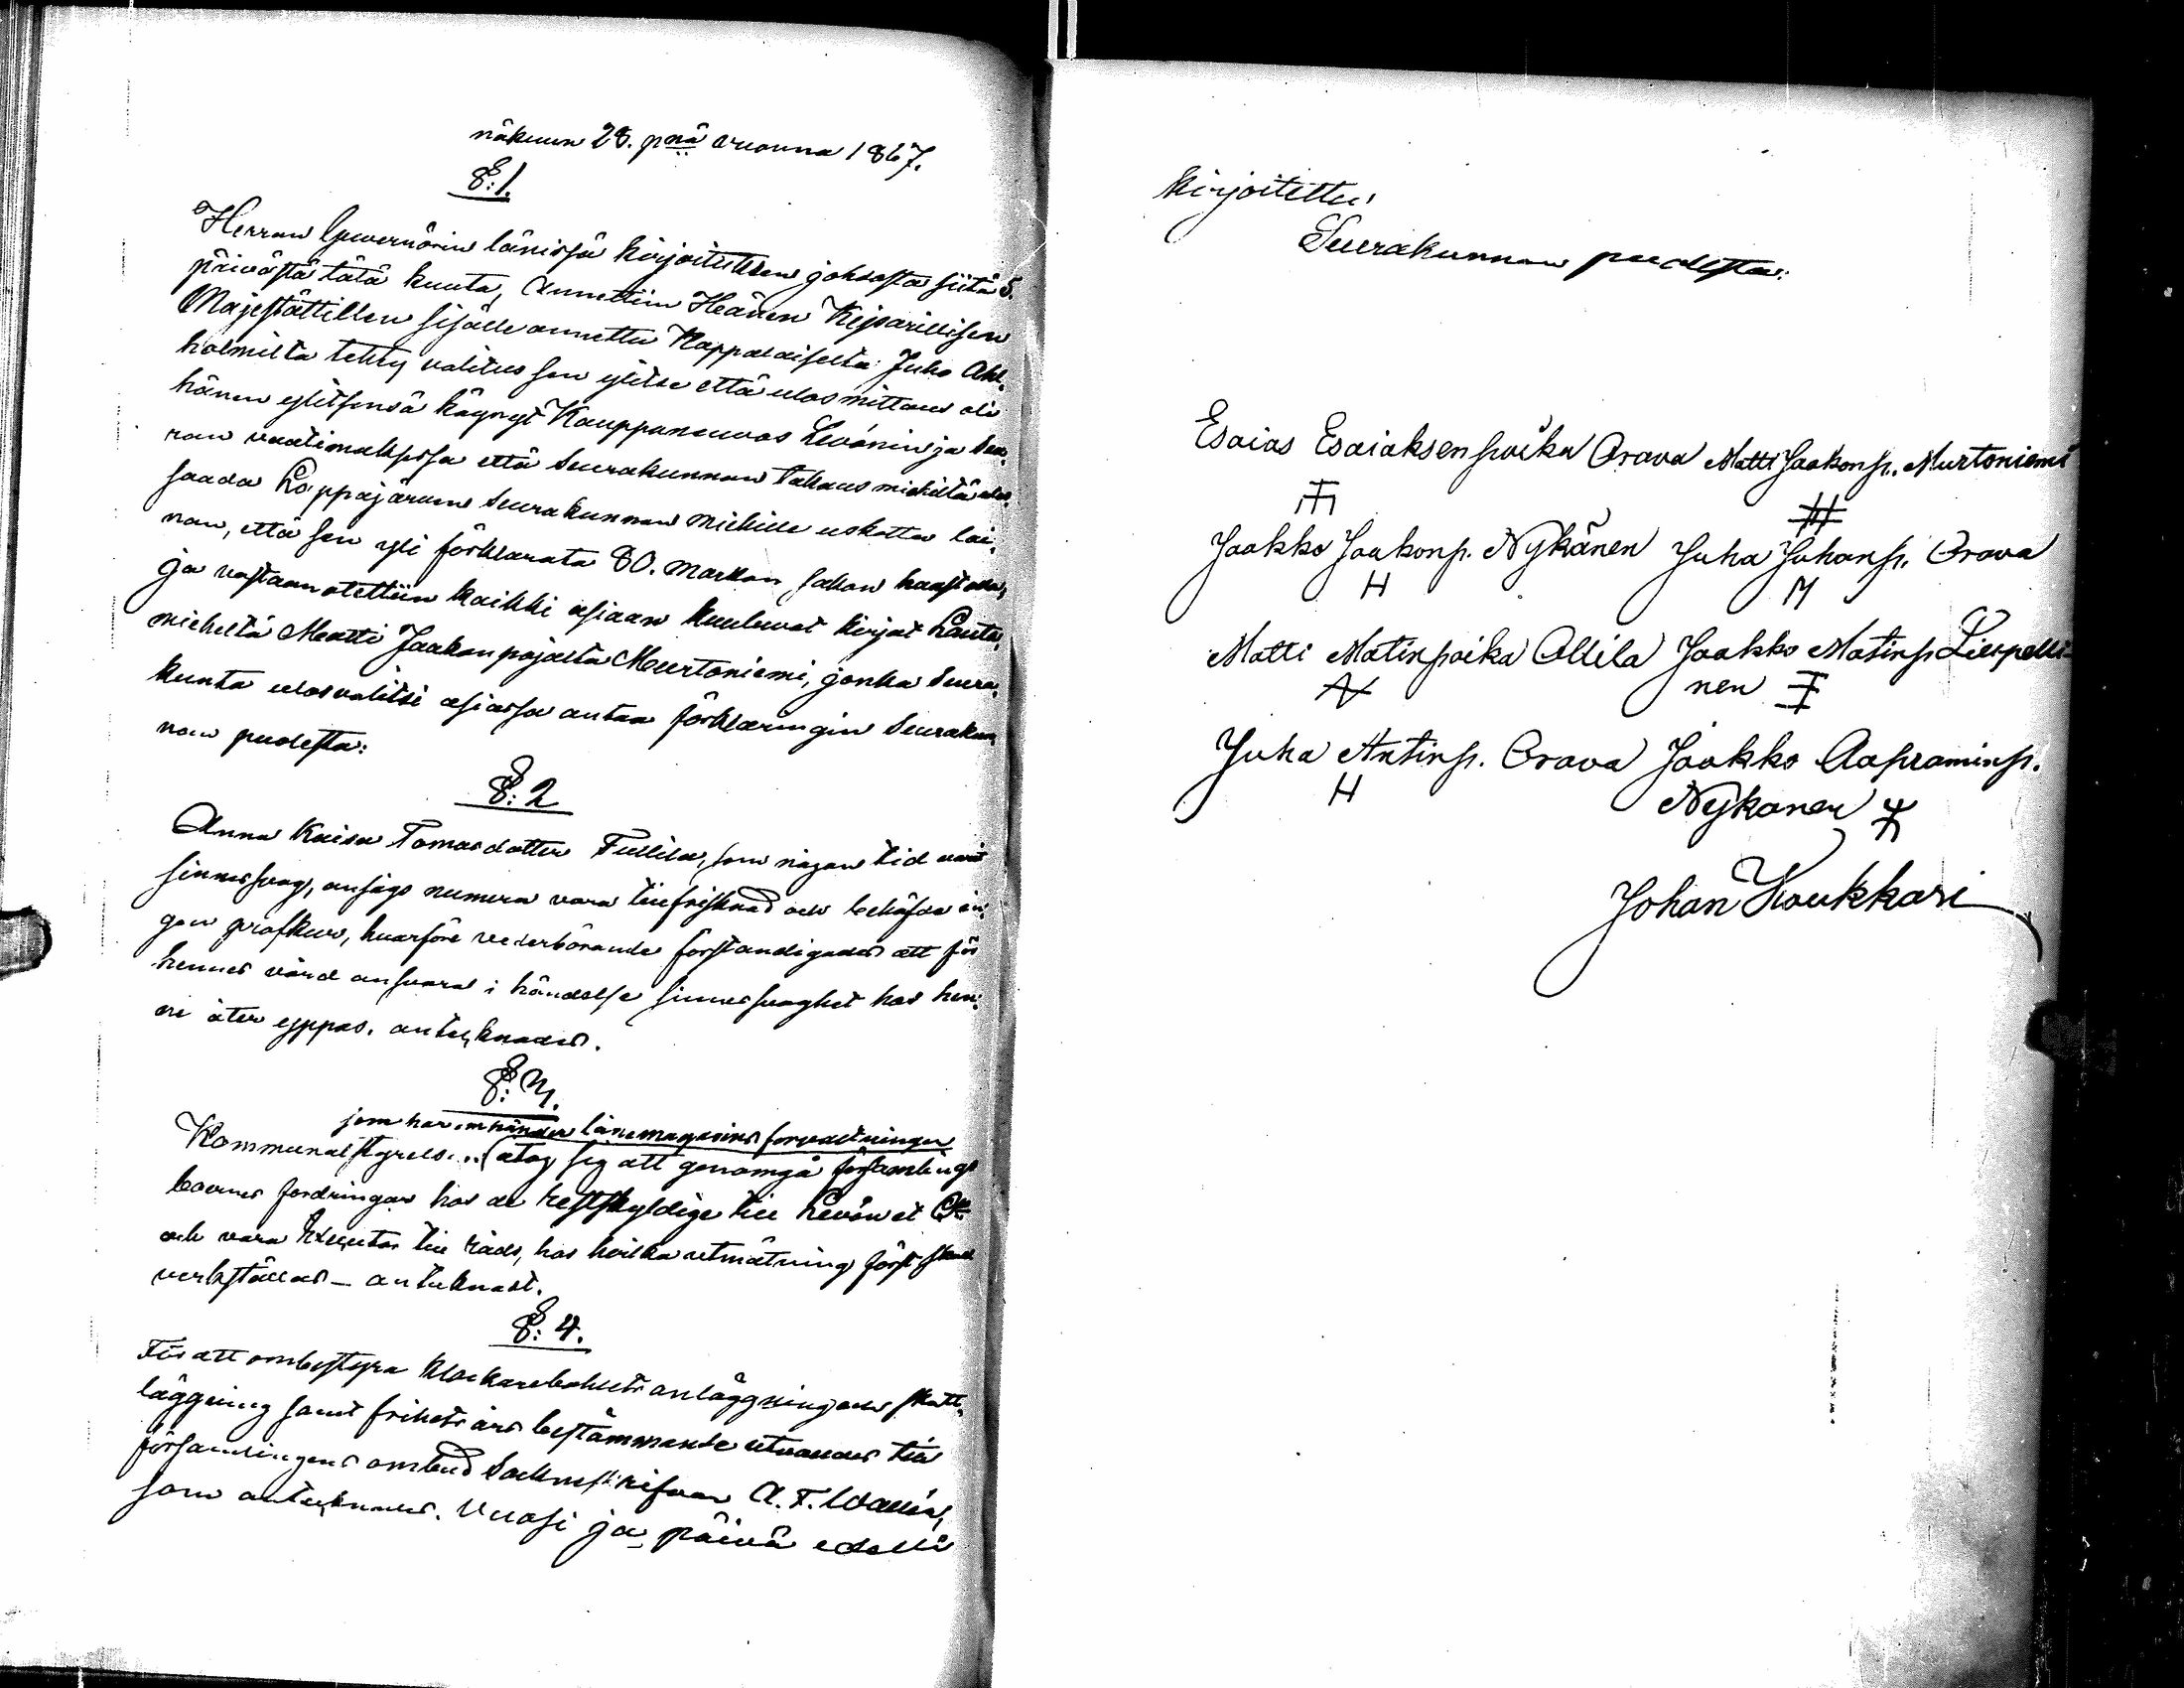 näkuun 28. pnä vuonna 1867.
§: 1.
Herran Guvernörin länissä kirjoituksen johdosta siitä 5.
päivästä tätä kuuta, annettiin Heänen Keisarillisen
Majestättillen sisälle annettu Kappalaiselta Juho Ahl-
holmilta tehty valitus sen ylitse että ulosmittaus oli
hänen ylitsensä käynyt Kauppaneuvos Levónin ja
ran vaatimuksissa että Seurakunnan takaus miehiltä ulos
saada Lappajärven Seurakunnan miehille uskottu lai-
nan, että sen yli förklarata 80. markan sakon haastolla,
ja vastaanotettiin kaikki asiaan kuuluvat kirjat Lauta-
mieheltä Matti Jaakonpojalta Murtoniemi, jonka Seura-
kunta ulosvalitsi asiassa antaa förklaringin Seurakun-
nan puolesta:
§: 2
Anna Kaisa Tomasdotter Tullila, som någon tid varit
sinnessvag, ansågs numera vara tillfrisknad och behöfde in-
gen hvarföre vederbörande förständigades att för
hennes vård ansvara i händelse sinnessvaghet hos hen-
ne åter yppas. antecknades.
§: 3.
som har omhänder lånemagasins forvaltningen
Kommunalstyrels... åtog sig att genomgå församlings
boernes fordringar hos de restskyldige till Levón et C:o
och vara till råds, hos hvilka utmätning först skall
verkställas – antecknadt.
§: 4.
För att ombestyra Klockarebolets anläggning och skatt-
läggning samt frihets års bestämmande utvaldes till
församlingens ombud Sockneskrifvaren A. F. Wallin,
som antecknades. Vuosi ja päivä edellä
kirjoitettu
Seurakunnan puolesta:
Esaias Esaiaksenpoika Orava Matti Jaakonp. Murtoniemi
Jaakko Jaakonp. Nykänen Juha Juhanp. Orava
H M
Matti Matinpoika Ollila Jaakko Matinp Lieppelli-
nen
Juha Antinp. Orava Jaakko Aapraminp.
H Nykanen
Johan Koukkari